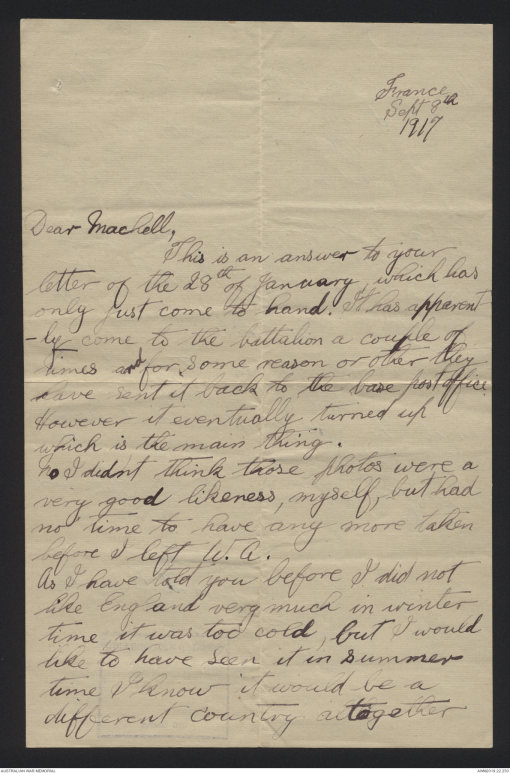 France
Sept 8th
1917
Dear Machell,
This is an answer to your
letter of the 28th of January, which has
only just come to hand. It has apparent
-ly come to the battalion a couple of
times and for some reason or other they
have sent it back to the base post office.
However it eventually turned up
which is the main thing.
No I didn't think those photos were a
very good likeness, myself, but had
no time to have any more taken
before I left W.A.
As I have told you before I did not
like England very much in winter
time, it was too cold, but I would
like to have seen it in summer
time I know it would be a
different country altogether
AUSTRALIAN WAR MEMORIAL